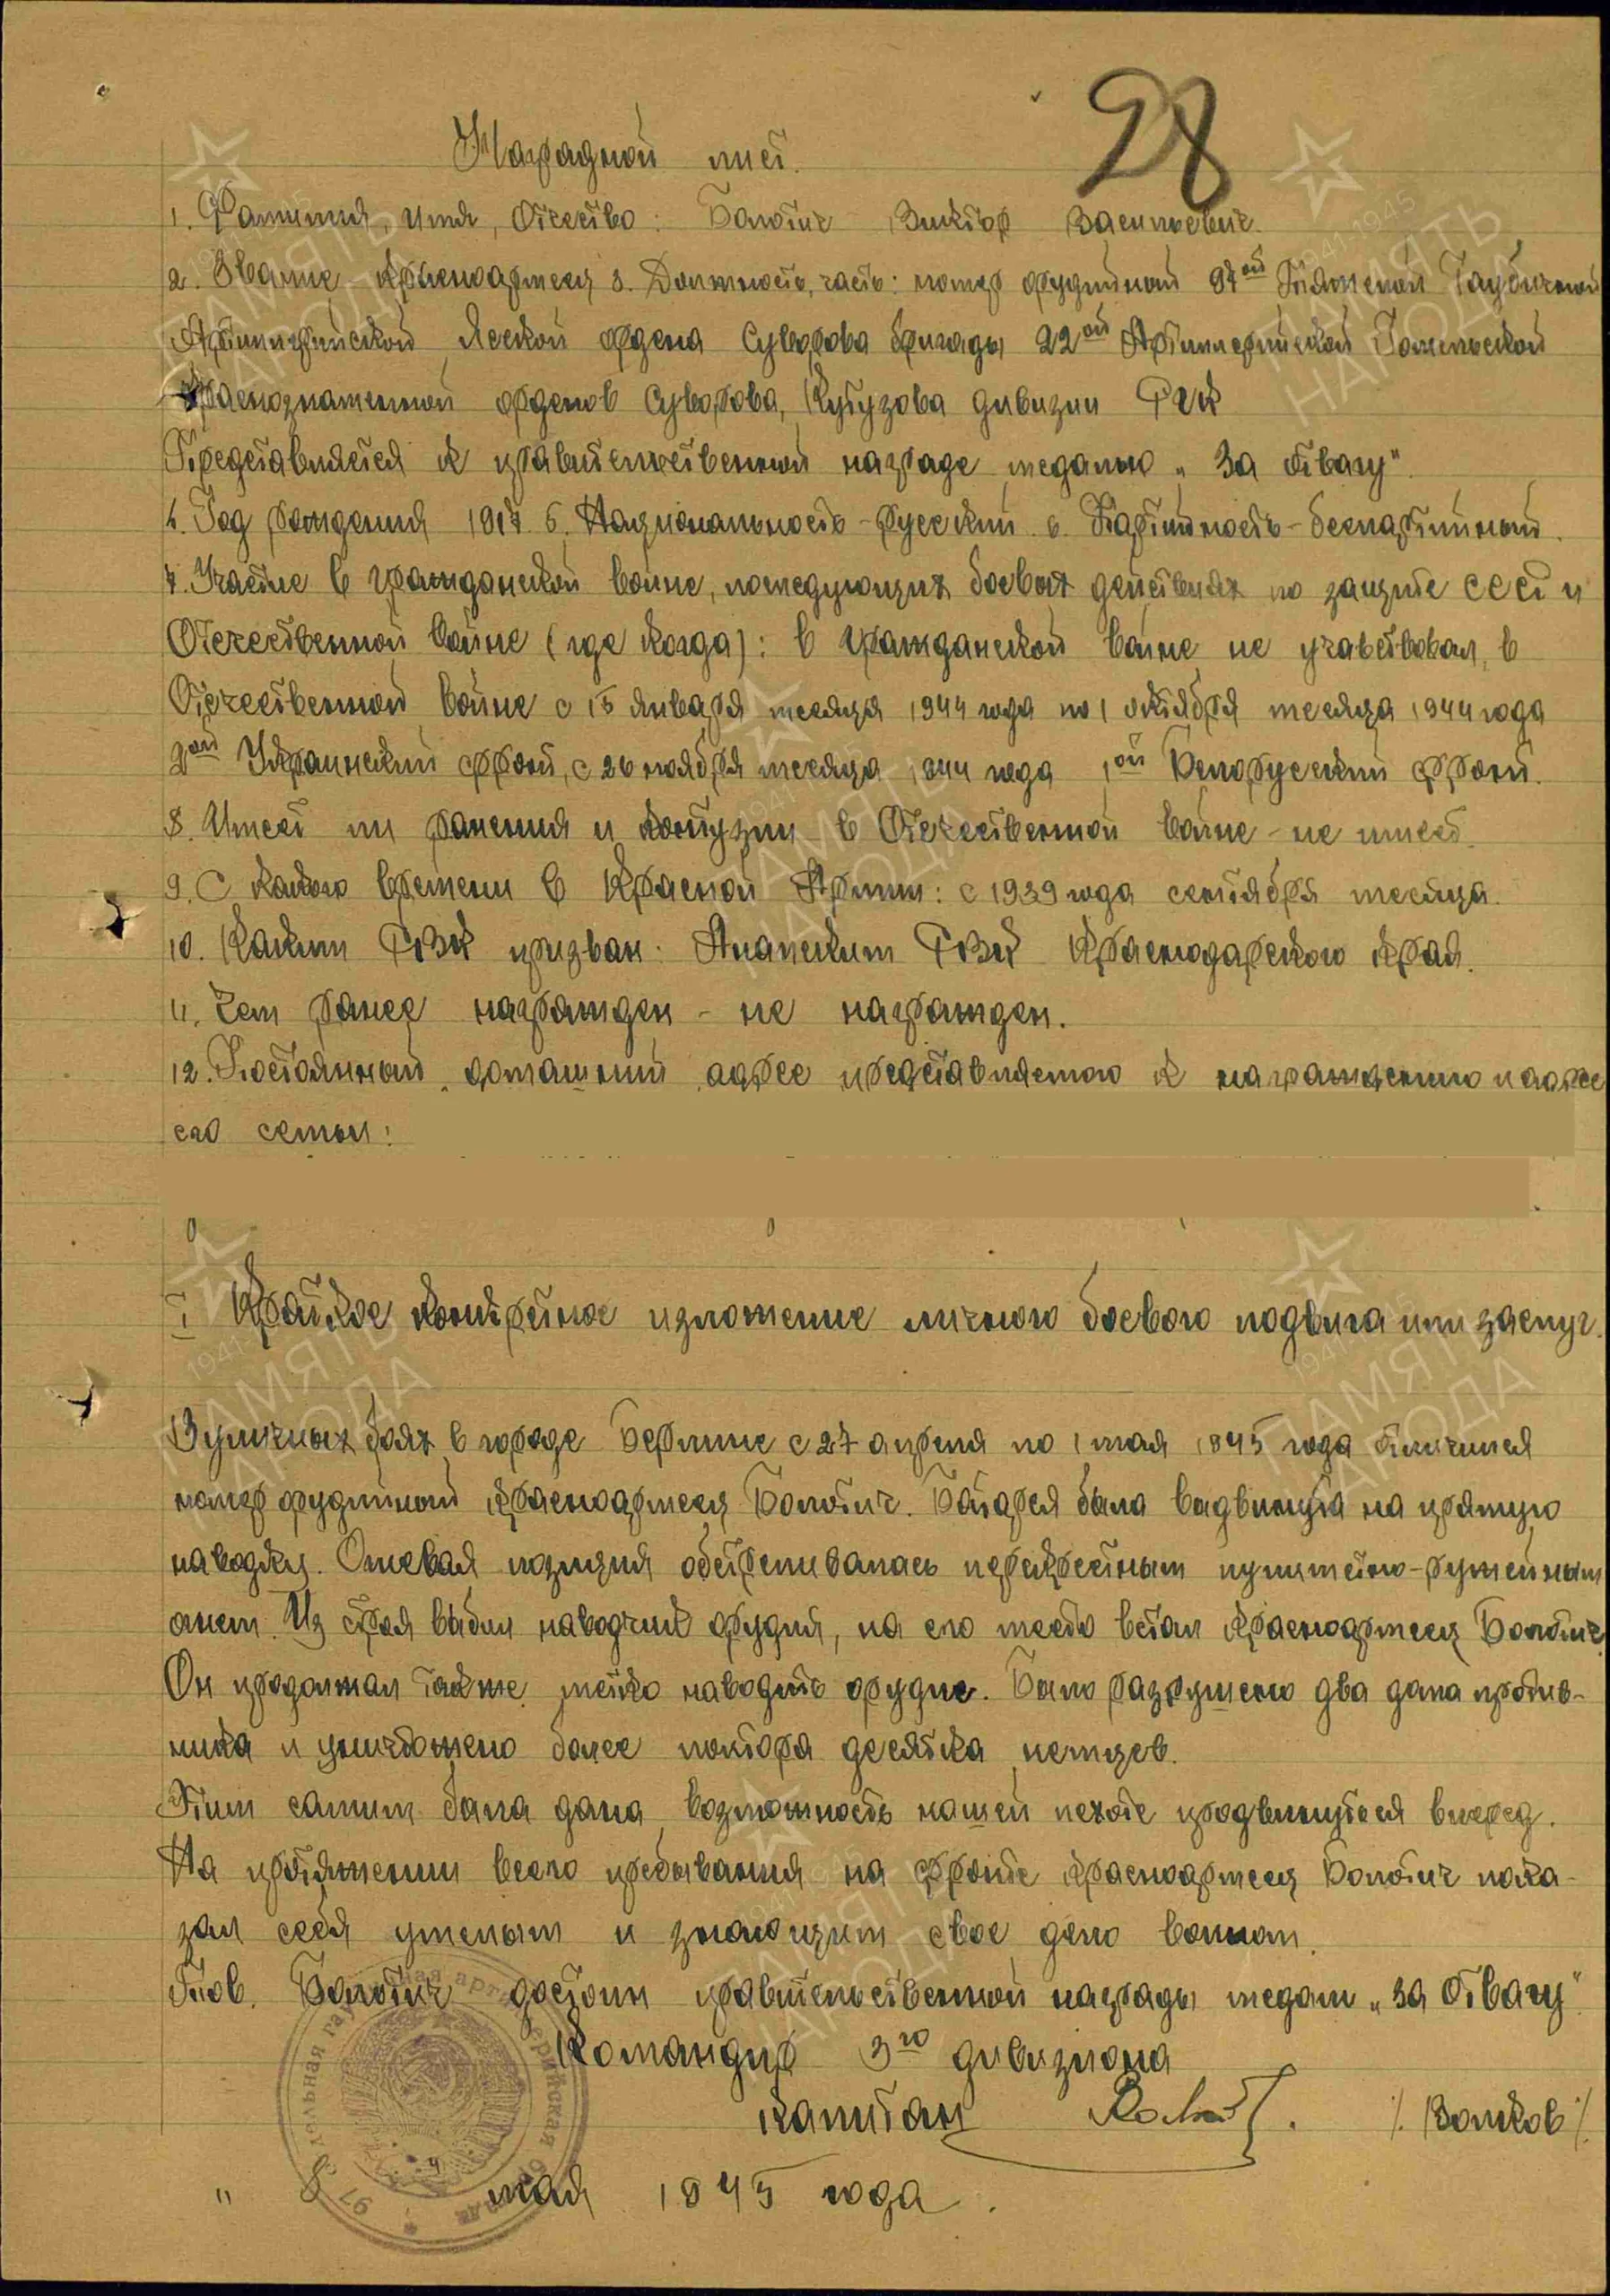 28
Наградной лист.
1. Фамилия, имя, Отчество: Болотич Виктор Васильевич.
2. Звание – красноармеец 3. Должность, часть: номер орудийный 97ой Тяжелой Гаубичной
Артиллерийской Ясской ордена Суворова бригады 22ой Артиллерийской Гомельской
Краснознаменной орденов Суворова, Кутузова дивизии РГК
Представляется к правительственной награде медалью „За отвагу".
4. Год рождения 1917 5. Национальность – русский. 6. Партийность – беспартийный.
7. Участие в гражданской войне, последующих боевых действиях по защите СССР и
Отечественной войне (где когда): в гражданской войне не учавствовал, в
Отечественной войне с 15 января месяца 1944 года по 1 октября месяца 1944 года
2ой Украинский фронт, с 26 ноября месяца 1944 года 1ой Белорусский фронт.
8. Имеет ли ранения и контузии в Отечественной войне – не имеет.
9. С какого времени в Красной Армии: с 1939 года сентября месяца.
10. Каким РВК призван: Анапским РВК Краснодарского края.
11. Чем ранее награжден – не награжден.
12. Постоянный домашний адрес представляемого к награждению и адрес
его семьи:
I Краткое конкретное изложение личного боевого подвига или заслуг.
В уличных боях в городе Берлине с 27 апреля по 1 мая 1945 года отличился
номер орудийный красноармеец Болотич. Батарея была выдвинута на прямую
наводку. Огневая позиция обстреливалась перекрестным пулеметно-ружейным
огнем. Из строя выбыл наводчик орудия, на его место встал красноармеец Болотич
Он продолжал также метко наводить орудие. Было разрушено два дома против-
ника и уничтожено более полтора десятка немцев.
Этим самым была дана возможность нашей пехоте продвинуться вперед.
На протяжении всего пребывания на фронте красноармеец Болотич пока-
зал себя умелым и знающим свое дело воином.
Тов. Болотич достоин правительственной награды медали „За Отвагу".
Командир 3го дивизиона
капитан /Волков/.
" 8 " мая 1945 года.
ПАМЯТЬ НАРОДА
1941-1945